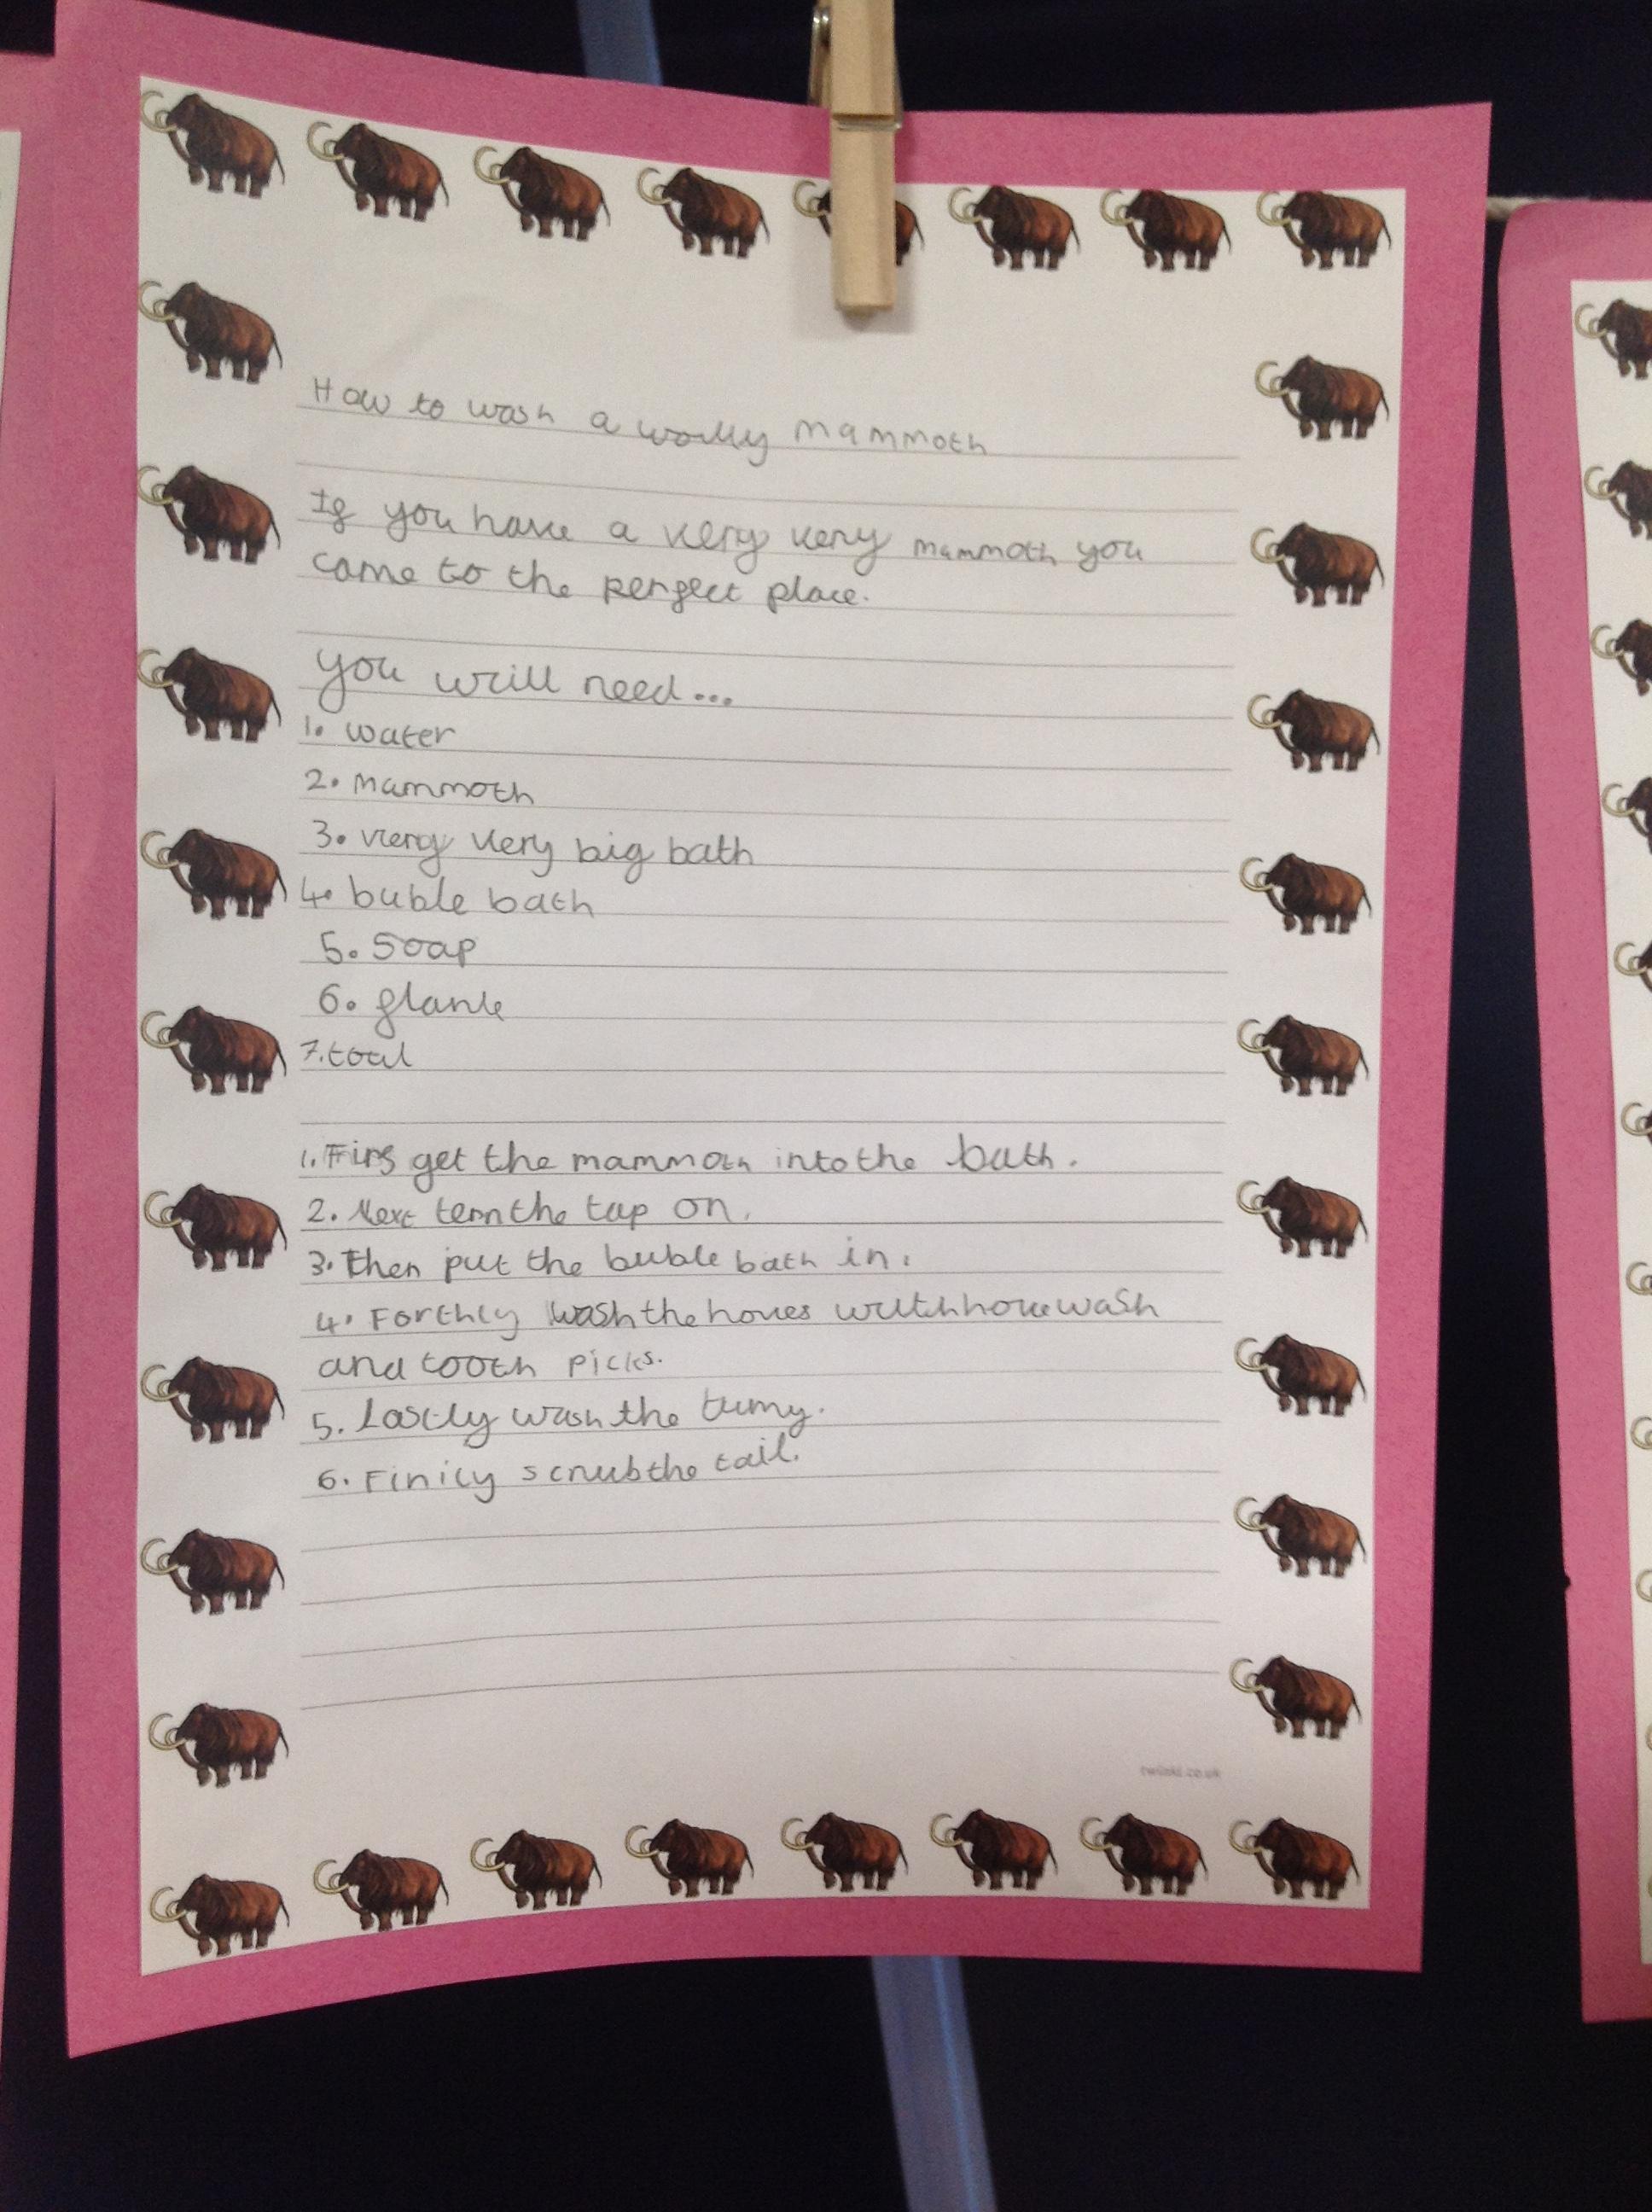 How to wash a wolly mammoth
If you have a very very mammoth you
came to the perfect place.
you will need...
1. water
2. mammoth
3. very very big bath
4. buble bath
5. Soap
6. flanle
7. toul
1. Firs get the mammoth into the bath.
2. Next tern the tap on.
3. Then put the buble bath in.
4. Forthly wash the hoves with hove wash
and tooth picks.
5. Lastly wash the tumy.
6. Finily scrub the tail.
twinkl.co.uk